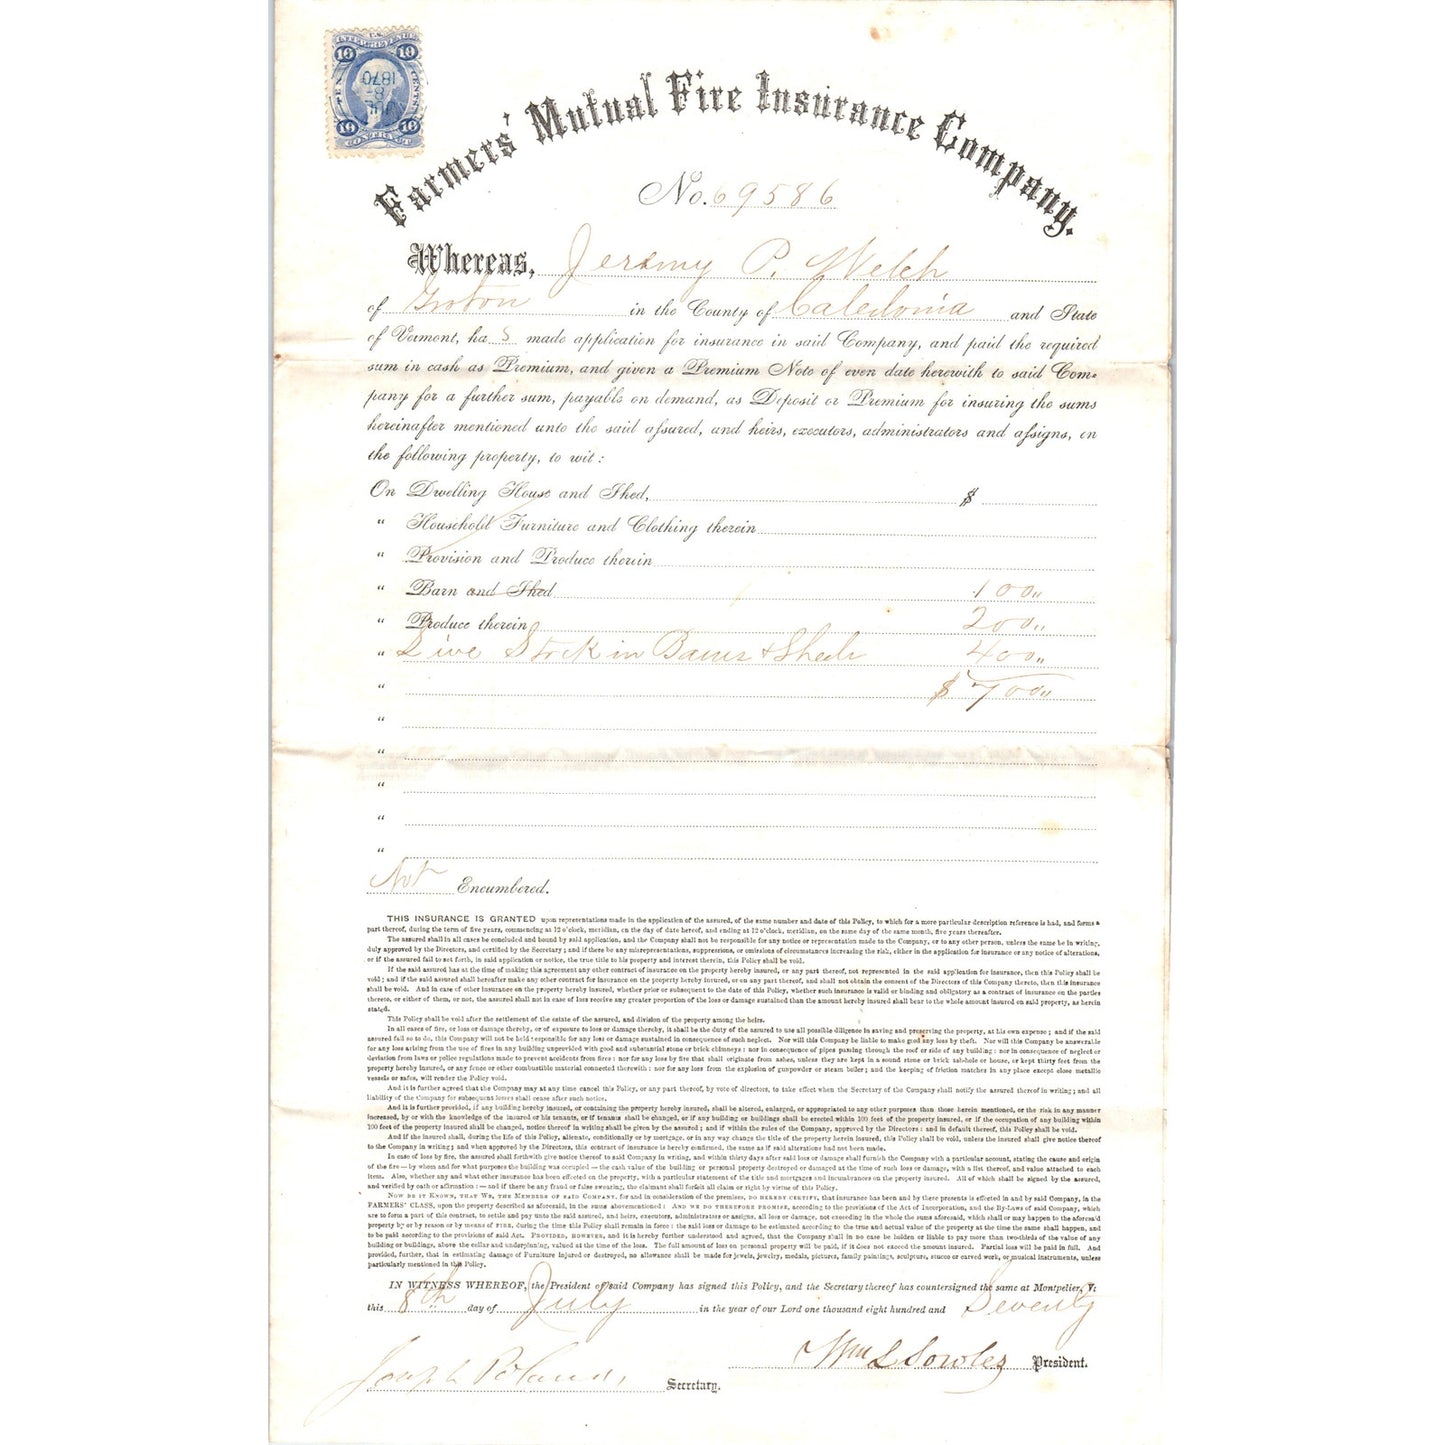 U.S.
INTER. REVENUE
10 10
TEN CENTS
JUL
8
1870
10 10
CONTRACT
Farmers' Mutual Fire Insurance Company.
No. 69586
Whereas, Jeremy P. Welch
of Groton in the County of Caledonia and State
of Vermont, ha s made application for insurance in said Company, and paid the required
sum in cash as Premium, and given a Premium Note of even date herewith to said Com-
pany for a further sum, payable on demand, as Deposit or Premium for insuring the sums
hereinafter mentioned unto the said assured, and heirs, executors, administrators and assigns, on
the following property, to wit:
On Dwelling House and Shed, $
" Household Furniture and Clothing therein
" Provision and Produce therein
" Barn and Shed 100"
" Produce therein 200"
" Live Stock in Barns & Sheds 400"
" $700"
"
"
"
"
"
Not Encumbered.
THIS INSURANCE IS GRANTED upon representations made in the application of the assured, of the same number and date of this Policy, to which for a more particular description reference is had, and forms a
part thereof, during the term of five years, commencing at 12 o'clock, meridian, on the day of date hereof, and ending at 12 o'clock, meridian, on the same day of the same month, five years thereafter.
The assured shall in all cases be concluded and bound by said application, and the Company shall not be responsible for any notice or representation made to the Company, or to any other person, unless the same be in writing,
duly approved by the Directors, and certified by the Secretary; and if there be any misrepresentations, suppressions, or omissions of circumstances increasing the risk, either in the application for insurance or any notice of alterations,
or if the assured fail to set forth, in said application or notice, the true title to his property and interest therein, this Policy shall be void.
If the said assured has at the time of making this agreement any other contract of insurance on the property hereby insured, or any part thereof, not represented in the said application for insurance, then this Policy shall be
void; and if the said assured shall hereafter make any other contract for insurance on the property hereby insured, or on any part thereof, and shall not obtain the consent of the Directors of this Company thereto, then this insurance
shall be void. And in case of other insurance on the property hereby insured, whether prior or subsequent to the date of this Policy, whether such insurance is valid or binding and obligatory as a contract of insurance on the parties
thereto, or either of them, or not, the assured shall not in case of loss receive any greater proportion of the loss or damage sustained than the amount hereby insured shall bear to the whole amount insured on said property, as herein
stated.
This Policy shall be void after the settlement of the estate of the assured, and division of the property among the heirs.
In all cases of fire, or loss or damage thereby, or of exposure to loss or damage thereby, it shall be the duty of the assured to use all possible diligence in saving and preserving the property, at his own expense; and if the said
assured fail so to do, this Company will not be held responsible for any loss or damage sustained in consequence of such neglect. Nor will this Company be liable to make good any loss by theft. Nor will this Company be answerable
for any loss arising from the use of fires in any building unprovided with good and substantial stone or brick chimneys: nor in consequence of pipes passing through the roof or side of any building: nor in consequence of neglect or
deviation from laws or police regulations made to prevent accidents from fires: nor for any loss by fire that shall originate from ashes, unless they are kept in a sound stone or brick ashhole or house, or kept thirty feet from the
property hereby insured, or any fence or other combustible material connected therewith: nor for any loss from the explosion of gunpowder or steam boiler; and the keeping of friction matches in any place except close metallic
vessels or safes, will render the Policy void.
And it is further agreed that the Company may at any time cancel this Policy, or any part thereof, by vote of directors, to take effect when the Secretary of the Company shall notify the assured thereof in writing; and all
liability of the Company for subsequent losses shall cease after such notice.
And it is further provided, if any building hereby insured, or containing the property hereby insured, shall be altered, enlarged, or appropriated to any other purposes than those herein mentioned, or the risk in any manner
increased, by or with the knowledge of the insured or his tenants, or if tenants shall be changed, or if any building or buildings shall be erected within 100 feet of the property insured, or if the occupation of any building within
100 feet of the property insured shall be changed, notice thereof in writing shall be given by the assured; and if within the rules of the Company, approved by the Directors: and in default thereof, this Policy shall be void.
And if the insured shall, during the life of this Policy, alienate, conditionally or by mortgage, or in any way change the title of the property herein insured, this Policy shall be void, unless the insured shall give notice thereof
to the Company in writing; and when approved by the Directors, this contract of insurance is hereby confirmed, the same as if said alterations had not been made.
In case of loss by fire, the assured shall forthwith give notice thereof to said Company in writing, and within thirty days after said loss or damage shall furnish the Company with a particular account, stating the cause and origin
of the fire—by whom and for what purposes the building was occupied—the cash value of the building or personal property destroyed or damaged at the time of such loss or damage, with a list thereof, and value attached to each
item. Also, whether any and what other insurance has been effected on the property, with a particular statement of the title and mortgages and incumbrances on the property insured. All of which shall be signed by the assured,
and verified by oath or affirmation:—and if there be any fraud or false swearing, the claimant shall forfeit all claim or right by virtue of this Policy.
NOW BE IT KNOWN, THAT WE, THE MEMBERS OF SAID COMPANY, for and in consideration of the premises, DO HEREBY CERTIFY, that insurance has been and by these presents is effected in and by said Company, in the
FARMERS' CLASS, upon the property described as aforesaid, in the sums abovementioned: AND WE DO THEREFORE PROMISE, according to the provisions of the Act of Incorporation, and the By-Laws of said Company, which
are to form a part of this contract, to settle and pay unto the said assured, and heirs, executors, administrators or assigns, all loss or damage, not exceeding in the whole the sums aforesaid, which shall or may happen to the aforesaid
property by or by reason or by means of FIRE, during the time this Policy shall remain in force: the said loss or damage to be estimated according to the true and actual value of the property at the time the same shall happen, and
to be paid according to the provisions of said Act. PROVIDED, HOWEVER, and it is hereby further understood and agreed, that the Company shall in no case be holden or liable to pay more than two-thirds of the value of any
building or buildings, above the cellar and underpinning, valued at the time of the loss. The full amount of loss on personal property will be paid, if it does not exceed the amount insured. Partial loss will be paid in full. And
provided, further, that in estimating damage of Furniture injured or destroyed, no allowance shall be made for jewels, jewelry, medals, pictures, family paintings, sculpture, stucco or carved work, or musical instruments, unless
particularly mentioned in this Policy.
IN WITNESS WHEREOF, the President of said Company has signed this Policy, and the Secretary thereof has countersigned the same at Montpelier, Vt
this 8th day of July in the year of our Lord one thousand eight hundred and Seventy
Wm L Sowles President.
Joseph Poland, Secretary.